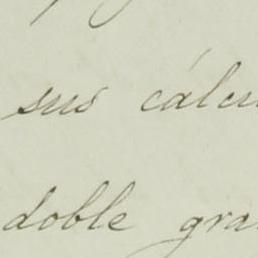 sus cálcu
doble gra